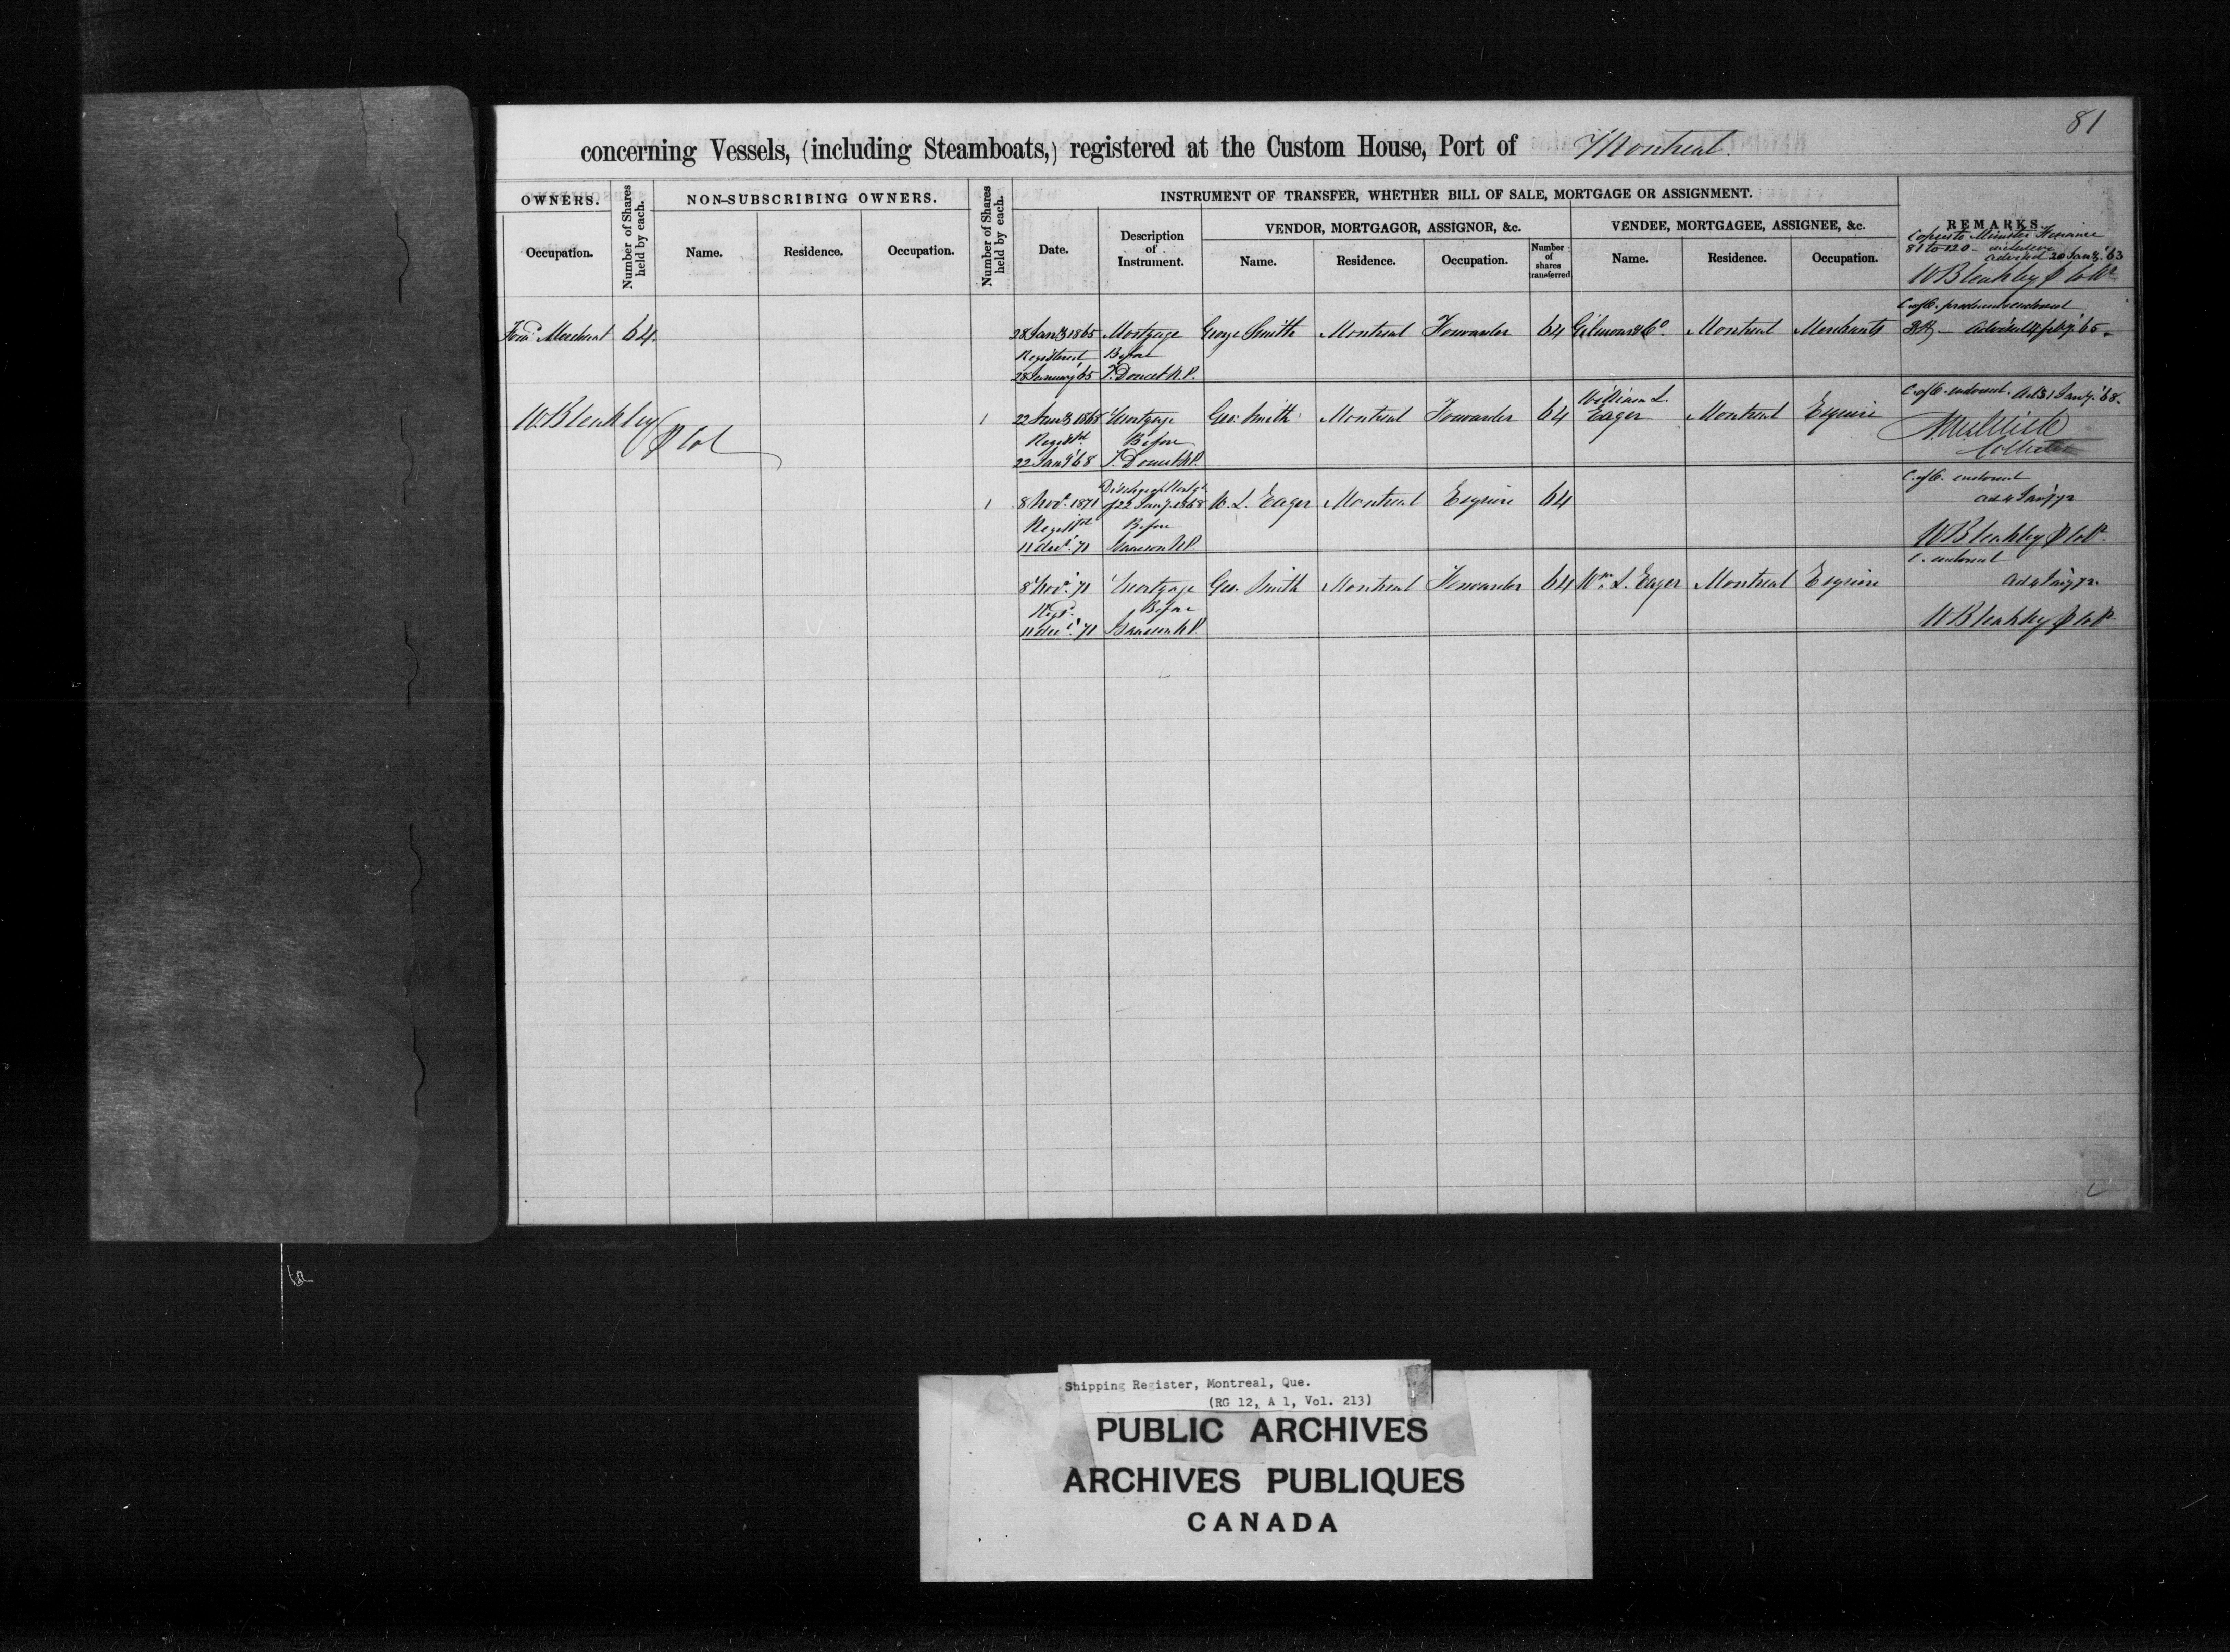 81
concerning Vessels, (including Steamboats,) registered at the Custom House, Port of Montreal.
OWNERS.
Number of Shares held by each.
NON-SUBSCRIBING OWNERS.
Number of Shares held by each.
INSTRUMENT OF TRANSFER, WHETHER BILL OF SALE, MORTGAGE OR ASSIGNMENT.
REMARKS.
VENDOR, MORTGAGOR, ASSIGNOR, &c.
VENDEE, MORTGAGEE, ASSIGNEE, &c.
Occupation.
Name.
Residence.
Occupation.
Date.
Description
of
Instrument.
Name.
Residence.
Occupation.
Number
of
shares
transferred
Name.
Residence.
Occupation.
Copies to Minister Finance
81 to 120 inclusive
advised 20 Jany. '63
W Bleakley
Merchant 64.
28 Jany 1865 Mortgage George Smith Montreal Forwarder 64 Gilmour & Co. Montreal Merchants
C. of O. endorsed
Registered Before
28 January '65 T. Doucet N.P.
W. Bleakley
1 22 Jany 1868 Mortgage Geo: Smith Montreal Forwarder 64 William L. Eager Montreal Esquire
C. of O. endorsed. Ad. 31 Jany. '68.
Collector
Regist'd Before
22 Jany '68 T. Doucet N.P.
1 8 Nov. 1871 Discharge Mortge of 22 Jany. 1868 W. L. Eager Montreal Esquire 64
C. of O. endorsed
ad 4 Jany 72
Regist'd Before
11 Dec. '71 Isaacson N.P.
W Bleakley
8 Nov. '71 Mortgage Geo. Smith Montreal Forwarder 64 Wm. L. Eager Montreal Esquire
C. endorsed
ad 4 Jany 72.
Regd. Before
11 Dec. '71 Isaacson N.P.
W Bleakley
Shipping Register, Montreal, Que.
(RG 12, A 1, Vol. 213)
PUBLIC ARCHIVES
ARCHIVES PUBLIQUES
CANADA